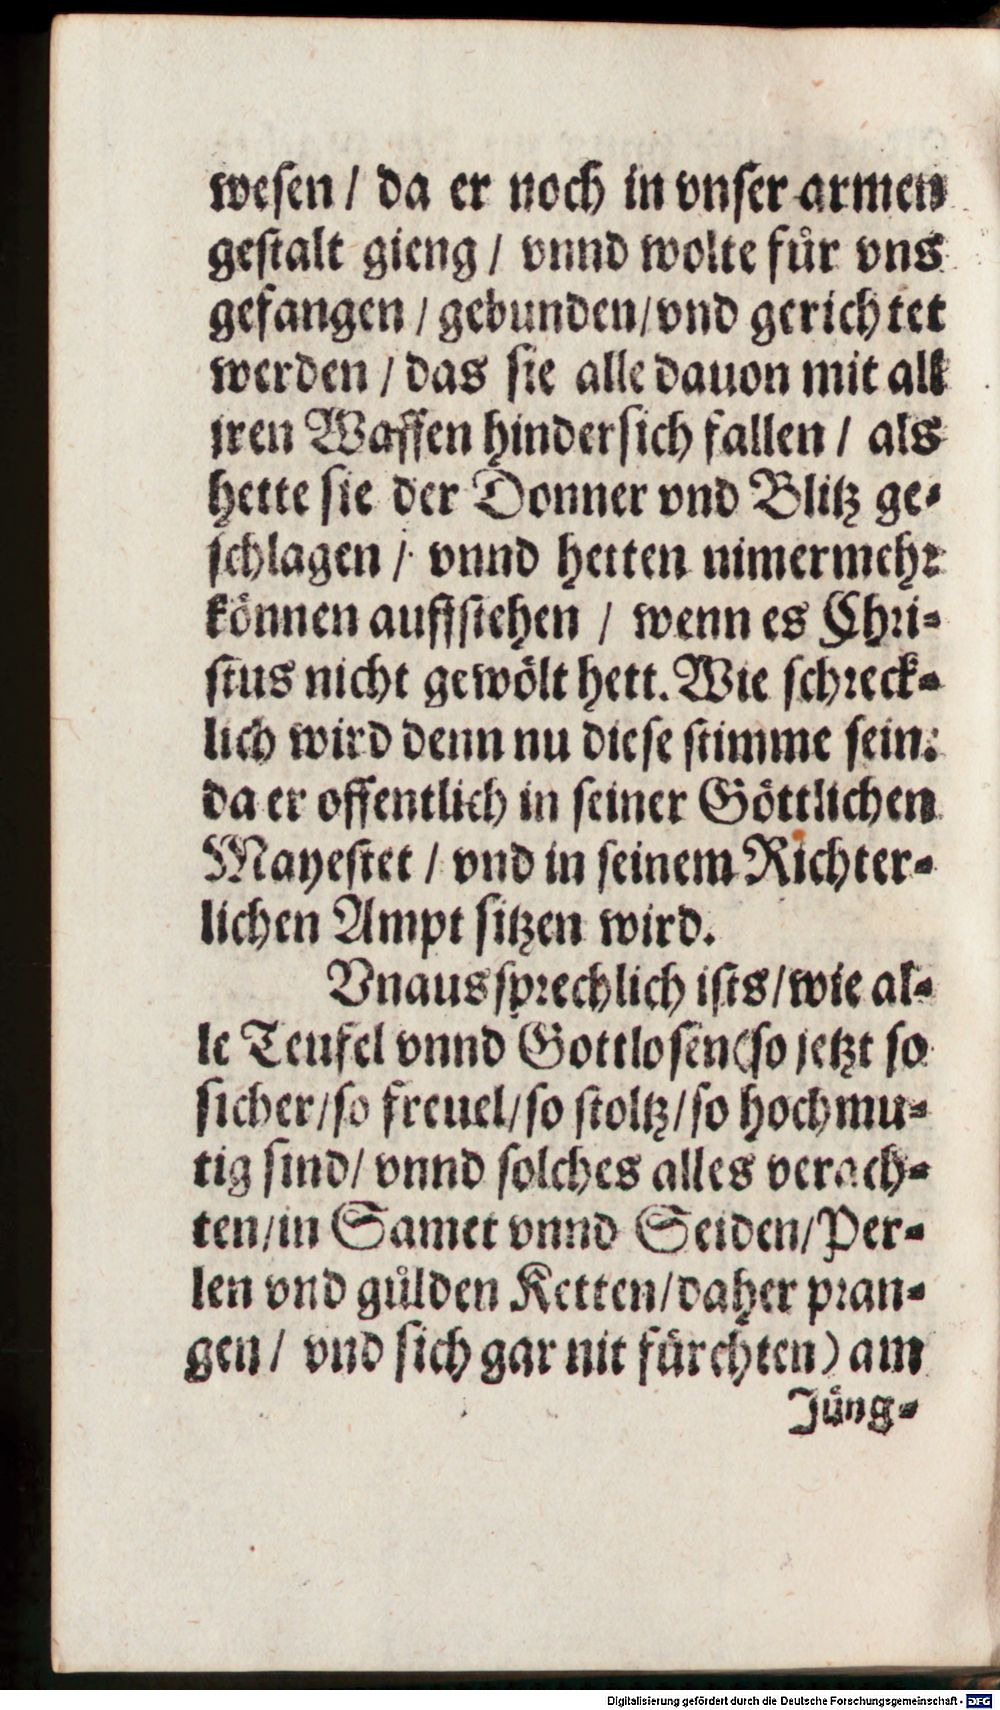 wesen / da er noch in vnser armen
gestalt gieng / vnnd wolte für vns
gefangen / gebunden / vnd gerichtet
werden / das sie alle dauon mit all
jren Waffen hindersich fallen / als
hette sie der Donner vnd Blitz ge-
schlagen / vnnd hetten nimermehr
können auffstehen / wenn es Chri-
stus nicht gewölt hett. Wie schreck-
lich wird denn nu diese stimme sein:
da er offentlich in seiner Göttlichen
Mayestet / vnd in seinem Richter-
lichen Ampt sitzen wird.
Vnaussprechlich ists / wie al-
le Teufel vnnd Gottlosen (so jetzt so
sicher / so freuel / so stoltz / so hochmu-
tig sind / vnnd solches alles verach-
ten / in Samet vnnd Seiden / Per-
len vnd gülden Ketten / daher pran-
gen / vnd sich gar nit fürchten) am
Jüng-
Digitalisierung gefördert durch die Deutsche Forschungsgemeinschaft - DFG